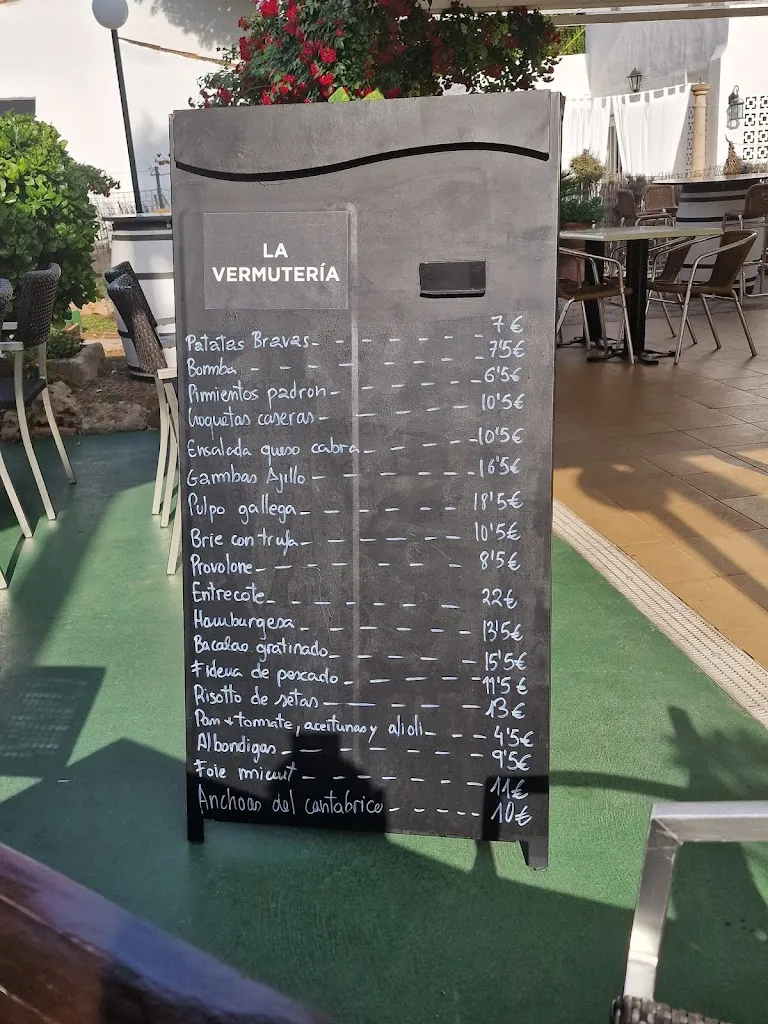 LA
VERMUTERÍA
Patatas Bravas - - - - - - 7€
Bomba - - - - - - - 7'5€
Pimientos padron - - - - - 6'5€
Croquetas caseras - - - - - 10'5€
Ensalada queso cabra - - - - 10'5€
Gambas Ajillo - - - - - - 16'5€
Pulpo gallega - - - - - - 18'5€
Brie con trufa - - - - - - 10'5€
Provolone - - - - - - - 8'5€
Entrecote - - - - - - - 22€
Hamburgesa - - - - - - 13'5€
Bacalao gratinado - - - - - 15'5€
Fideua de pescado - - - - - 11'5€
Risotto de setas - - - - - 13€
Pan + tomate, aceitunas y alioli - - - 4'5€
Albondigas - - - - - - 9'5€
Foie micuit - - - - - - 11€
Anchoas del cantabrico - - - - 10€